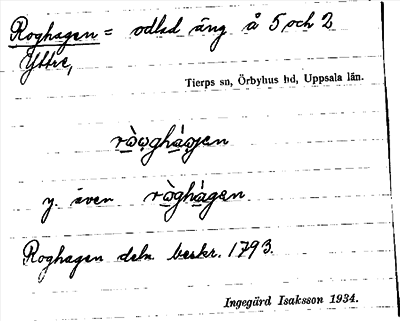 Roghagen = odlad äng å 5 och 2
Yttre,
Tierps sn, Örbyhus hd, Uppsala län.
rò̲ωghá̲gen
y. även rògh̀agen
Roghagen deln. beskr. 1793.
Ingegärd Isaksson 1934.